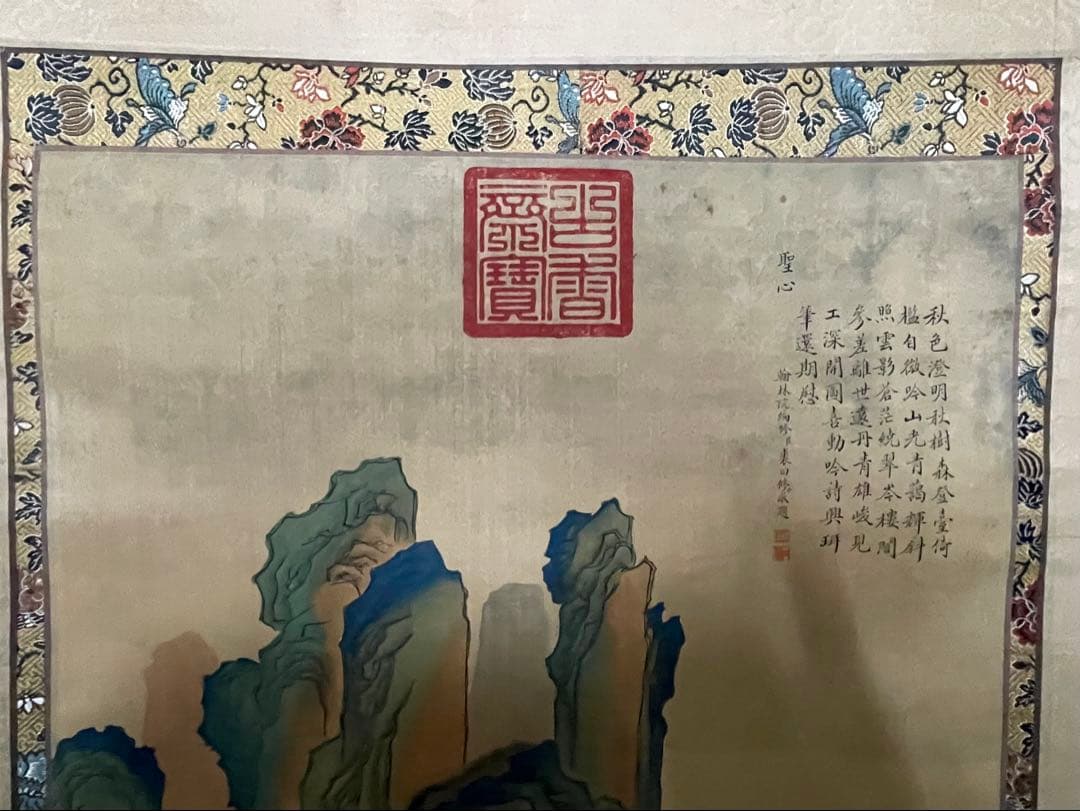 秋色澄明秋樹森登臺倚
檻自微吟山光青靄輝斜
照雲影蒼茫繞翠岑樓閣
參差離世遠丹青雄峻見
工深開圖喜動吟詩興珥
筆還期慰
聖心
翰林院編修臣裘曰修敬題
古香
齋寶